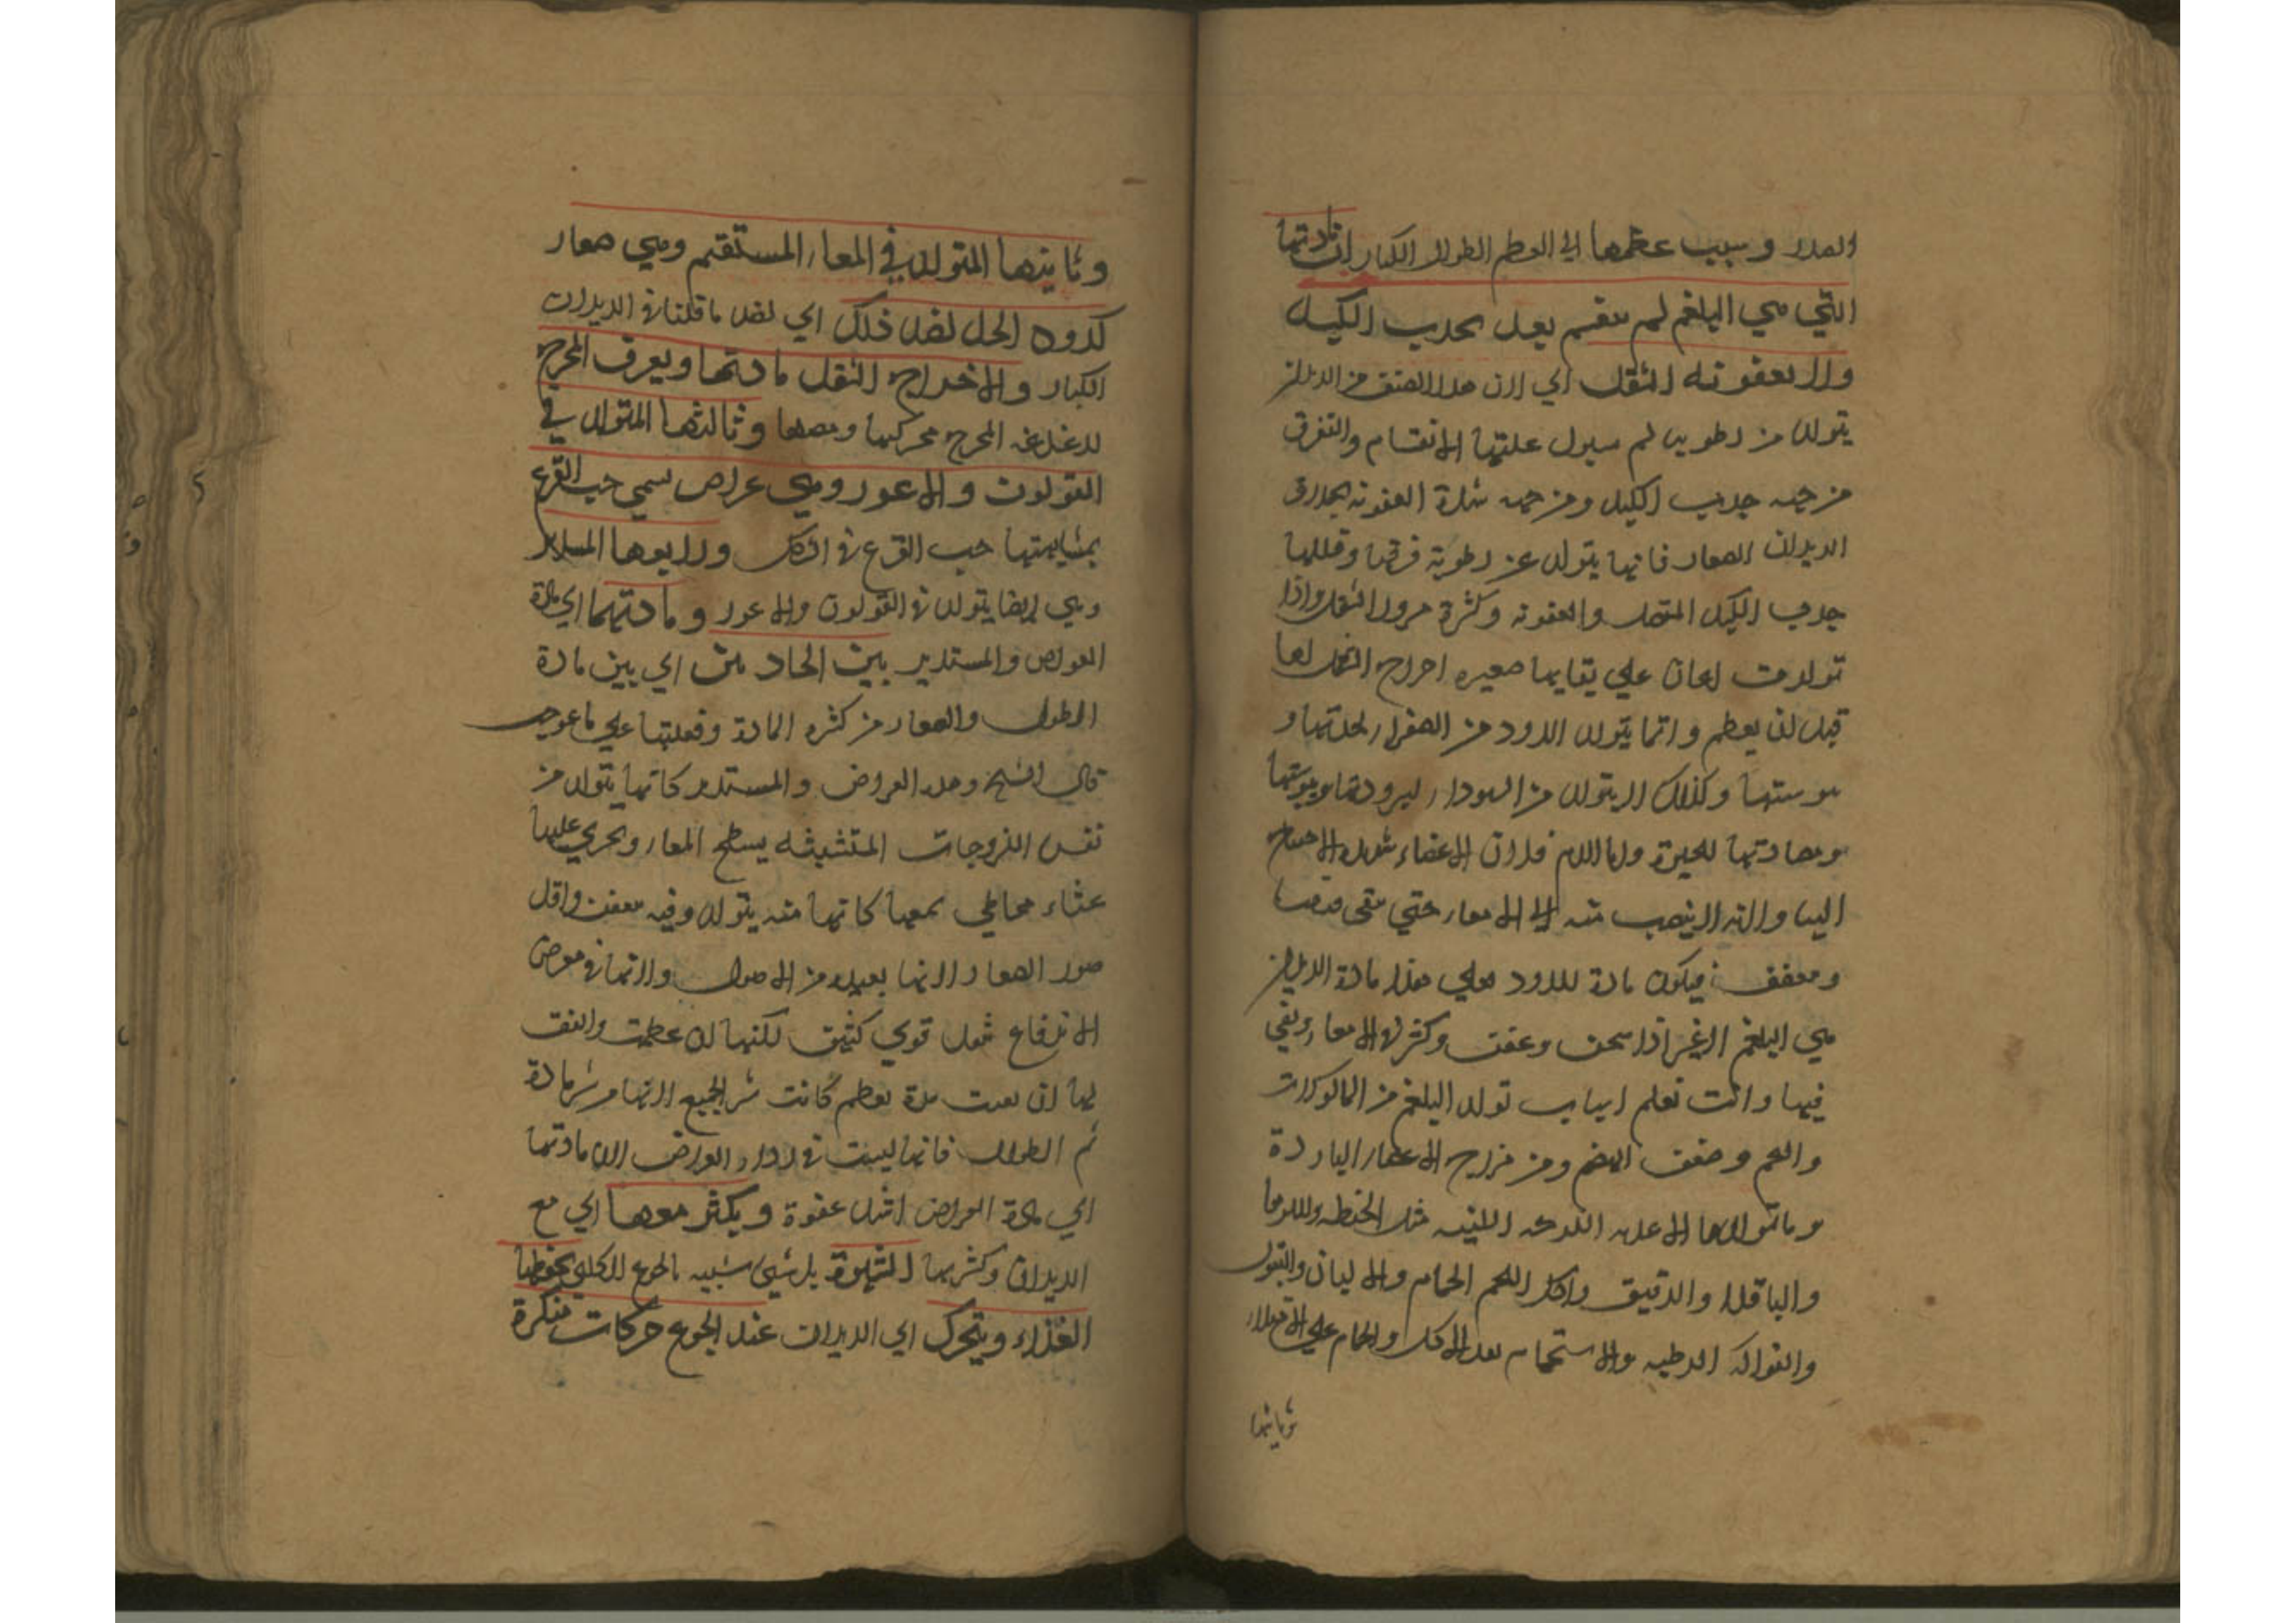 وسبب عظمها اي العظم الطوال الكبار ان مادتها
التي هي البلغم لم ينقسم بعد بجذب الكبد
ولا بعفونة الثفل اي لان هذا الصنف من الديدان
يتولد من رطوبة لم يستول عليها الانقسام والتفرق
من جهة جذب الكبد ومن جهة شدة العفونة بخلاف
الديدان الصغار فانها يتولد عن رطوبة فرقها وقللها
جذب الكبد المتصل والعفونة وكثرة مرور الثفل واذا
تولدت اعان علي بقايها صغيره اخراج الثفل لها
قبل ان يعظم وانما يتولد الدود من الصفراء لحدتها و
يبوستها وكذلك لا يتولد من السوداء لبرودتها ويبوستها
ومضادتها للحيوة واما الدم فلان الاعضاء شديدة الاحتياج
اليها ولانه لا ينصب منه الي الامعاء حتي يبقى
ويتعفن فيكون مادة للدود فعلي هذا مادة الديدان
هي البلغم الاغير اذا سخن وعفن وكثر في الامعاء وبقي
فيها وانت تعلم اسباب تولد البلغم من الماكولات
والتخم وضعف الهضم ومن مزاج الاعضاء الباردة
ومما تولدها الاغذية اللزجة اللينة مثل الحنطة واللوبيا
والباقلا والدقيق واكل اللحم الخام والالبان والبقول
والفواكه الرطبه والاستحمام بعد الاكل والجماع علي الامتلاء
وثانيها
وثانيها المتولد في المعاء المستقيم وهي صغار
كدود الخل لضد ذلك اي لضد ما قلنا في الديدان
الكبار ولاخراج الثفل مادتها ويعرف المخرج
لدغدغة المخرج بحركتها ومصها وثالثها المتولد في
القولون والاعور وهي عراض يسمي حب القرع
بمشابهتها حب القرع في الشكل ورابعها المستدير
وهي ايضا يتولد في القولون والاعور ومادتهما اي مادة
العراض والمستدير بين الحادتين اي بين مادة
الطوال والصغار من كثره المادة وقلتها علي ما عرف
قال الشيخ وهذه العراض والمستدير كانها يتولد من
نفس اللزوجات المتشبثه بسطح المعاء ويجري عليها
غشاء مخاطي يجمعها كانها منه يتولد وفيه يتعفن واقل
ضررا الصغار لانها بعيدة من الاصول ولانها في معرض
الاندفاع بثفل قوي كثيف لكنها ان عظمت واتفق
لها ان بقيت مدة يعظم كانت شر الجميع لانها من شر مادة
ثم الطوال فانها ليست في رداءة العراض لان مادتها
اي مادة العراض اشد عفونة ويكثر معها اي مع
الديدان وكثرتها الشهوة بل شيئ شبيه بالجوع الكلبي لخطفها
الغذاء ويتحرك اي الديدان عند الجوع حركات منكرة